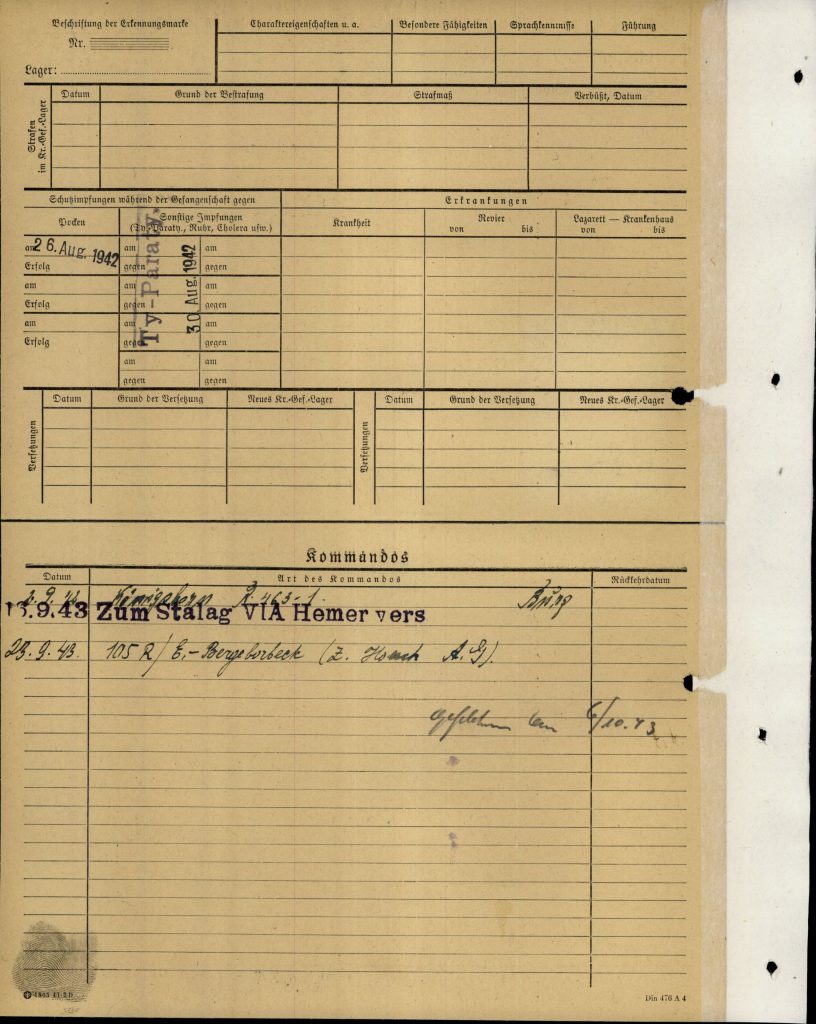 Beschriftung der Erkennungsmarke
Nr.
Lager:
Charaktereigenschaften u. a.
Besondere Fähigkeiten
Sprachkenntnisse
Führung
Strafen im Kr.-Gef.-Lager
Datum
Grund der Bestrafung
Strafmaß
Verbüßt, Datum
Schutzimpfungen während der Gefangenschaft gegen
Erkrankungen
Pocken
Sonstige Impfungen
(Ty.-Paraty., Ruhr, Cholera usw.)
Krankheit
Revier
von bis
Lazarett — Krankenhaus
von bis
am 26. Aug. 1942
Erfolg
am
Erfolg
am
Erfolg
Ty-Paraty.
30. Aug. 1942
am am
gegen gegen
am am
gegen gegen
am am
gegen gegen
am am
gegen gegen
Versetzungen
Datum
Grund der Versetzung
Neues Kr.-Gef.-Lager
Versetzungen
Datum
Grund der Versetzung
Neues Kr.-Gef.-Lager
Kommandos
Datum
Art des Kommandos
Rückkehrdatum
9. 42 Königsborn R. 463-1 Burg
13.9.43 Zum Stalag VIA Hemer vers
23. 9. 43. 105 R/ E.-Bergeborbeck (Z. A.G).
6/10.43
1805 41 2 D
Din 476 A 4